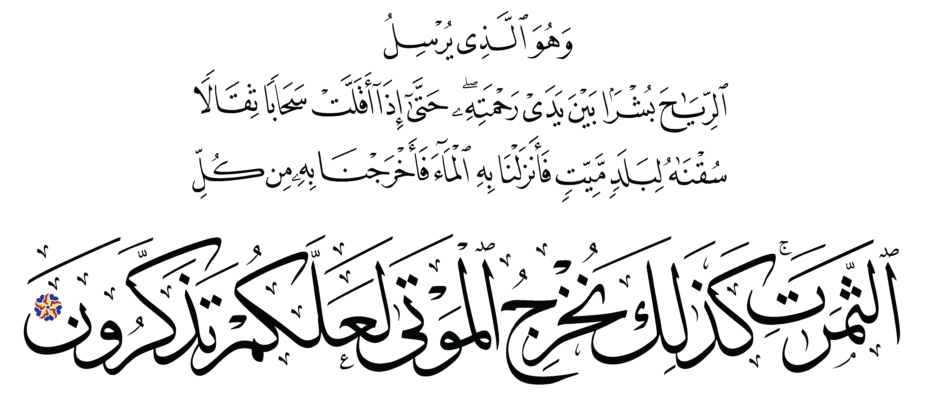 وَهُوَ ٱلَّذِى يُرْسِلُ
ٱلرِّيَٰحَ بُشْرَۢا بَيْنَ يَدَىْ رَحْمَتِهِۦ ۖ حَتَّىٰٓ إِذَآ أَقَلَّتْ سَحَابًا ثِقَالًا
سُقْنَٰهُ لِبَلَدٍ مَّيِّتٍ فَأَنزَلْنَا بِهِ ٱلْمَآءَ فَأَخْرَجْنَا بِهِۦ مِن كُلِّ
ٱلثَّمَرَٰتِ ۚ كَذَٰلِكَ نُخْرِجُ ٱلْمَوْتَىٰ لَعَلَّكُمْ تَذَكَّرُونَ